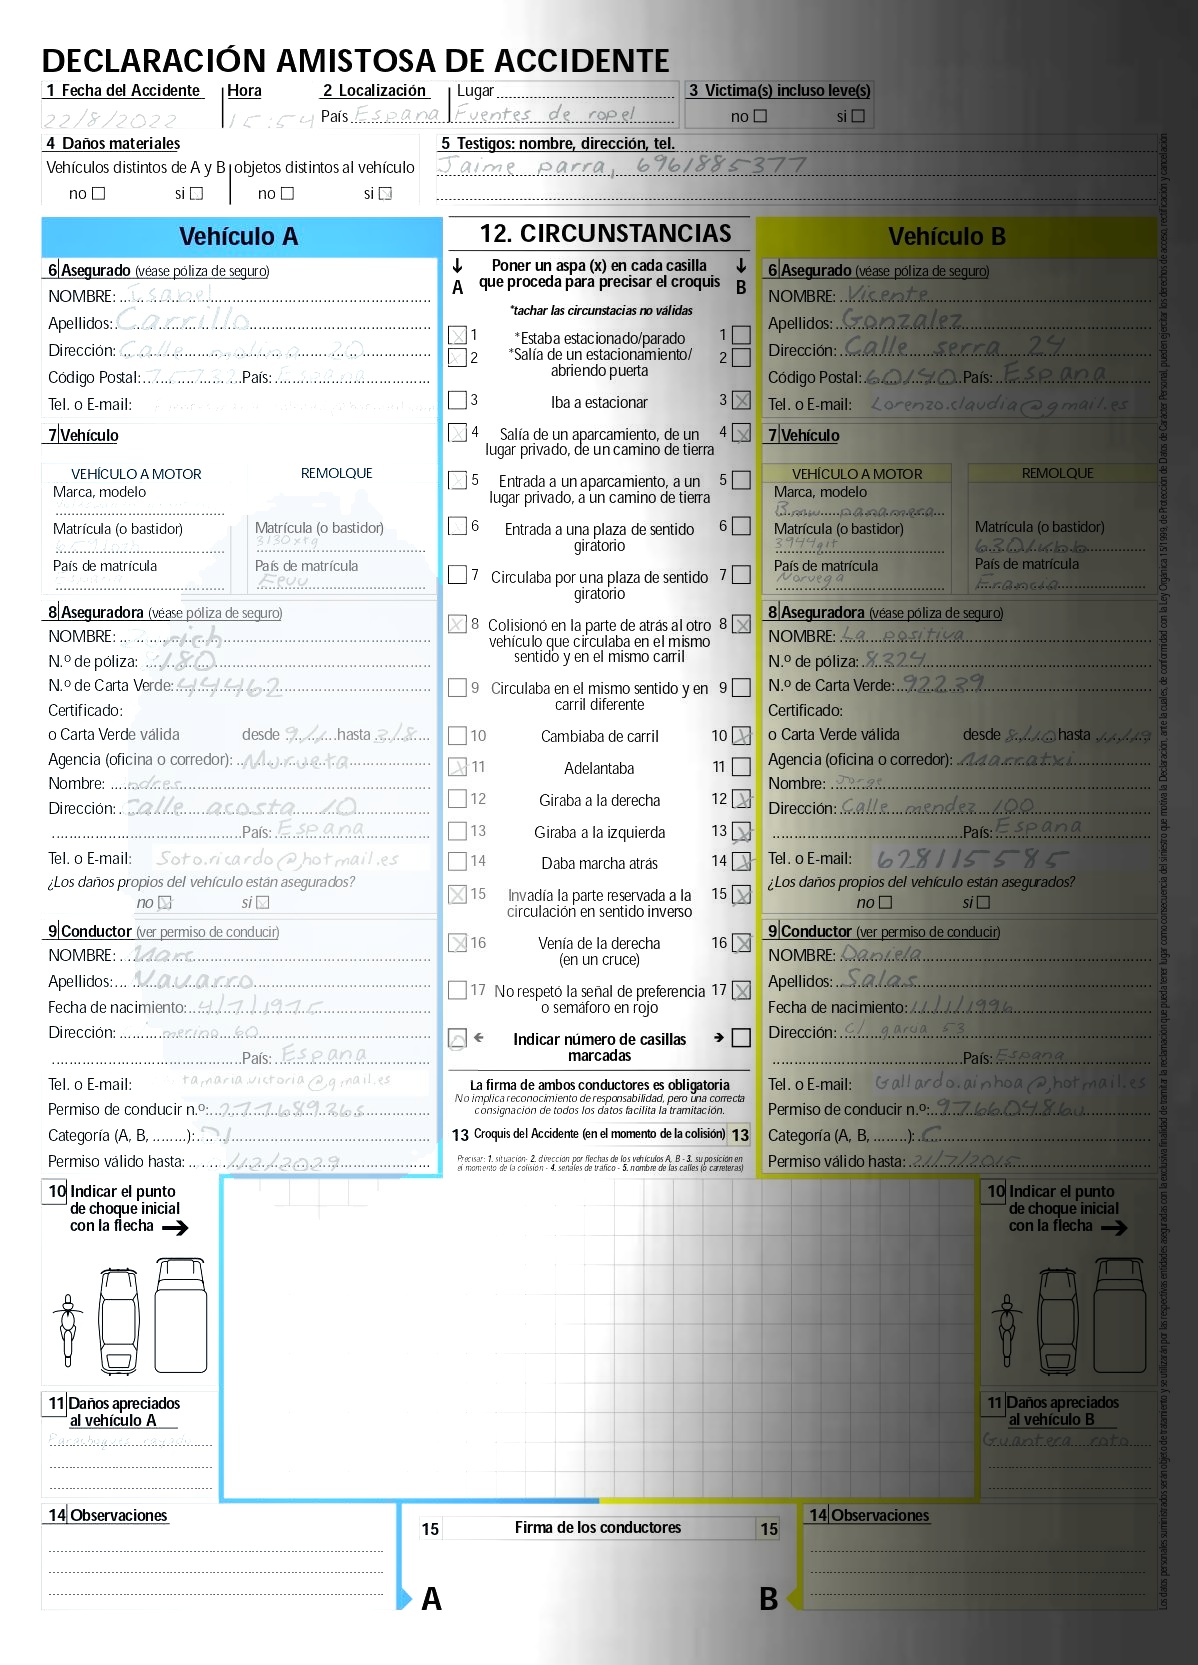 DECLARACIÓN AMISTOSA DE ACCIDENTE
1 Fecha del Accidente Hora 2 Localización Lugar 3 Victima(s) incluso leve(s)
22/8/2022 15:54 País España Fuentes de ropel no si
4 Daños materiales
Vehículos distintos de A y B objetos distintos al vehículo
no si no si
5 Testigos: nombre, dirección, tel.
Jaime parra, 6961885377
Vehículo A
6 Asegurado (véase póliza de seguro)
NOMBRE: Isabel
Apellidos: Carrillo
Dirección: Calle molina 20
Código Postal: País: España
Tel. o E-mail:
7 Vehículo
VEHÍCULO A MOTOR REMOLQUE
Marca, modelo
Matrícula (o bastidor) Matrícula (o bastidor)
3130xtg
País de matrícula País de matrícula
Eeuu
8 Aseguradora (véase póliza de seguro)
NOMBRE: rich
N.º de póliza: 180
N.º de Carta Verde: 44462
Certificado:
o Carta Verde válida desde hasta 3/8
Agencia (oficina o corredor): Murueta
Nombre: ndres
Dirección: Calle acosta 10
País: España
Tel. o E-mail: Soto.ricardo@hotmail.es
¿Los daños propios del vehículo están asegurados?
no si
9 Conductor (ver permiso de conducir)
NOMBRE: Marc
Apellidos: Navarro
Fecha de nacimiento: 4/7/1975
Dirección: merino 60
País: España
Tel. o E-mail: tamaria.victoria@gmail.es
Permiso de conducir n.º: 27768936s
Categoría (A, B, ........):
Permiso válido hasta: /12/2029
10 Indicar el punto
de choque inicial
con la flecha
11 Daños apreciados
al vehículo A
Parachoques rayado
14 Observaciones
12. CIRCUNSTANCIAS
A B
Poner un aspa (x) en cada casilla
que proceda para precisar el croquis
*tachar las circunstacias no válidas
1 *Estaba estacionado/parado 1
2 *Salía de un estacionamiento/ 2
abriendo puerta
3 Iba a estacionar 3
4 Salía de un aparcamiento, de un 4
lugar privado, de un camino de tierra
5 Entrada a un aparcamiento, a un 5
lugar privado, a un camino de tierra
6 Entrada a una plaza de sentido 6
giratorio
7 Circulaba por una plaza de sentido 7
giratorio
8 Colisionó en la parte de atrás al otro 8
vehículo que circulaba en el mismo
sentido y en el mismo carril
9 Circulaba en el mismo sentido y en 9
carril diferente
10 Cambiaba de carril 10
11 Adelantaba 11
12 Giraba a la derecha 12
13 Giraba a la izquierda 13
14 Daba marcha atrás 14
15 Invadía la parte reservada a la 15
circulación en sentido inverso
16 Venía de la derecha 16
(en un cruce)
17 No respetó la señal de preferencia 17
o semáforo en rojo
Indicar número de casillas
marcadas
La firma de ambos conductores es obligatoria
No implica reconocimiento de responsabilidad, pero una correcta
consignacion de todos los datos facilita la tramitación.
13 Croquis del Accidente (en el momento de la colisión) 13
Precisar: 1. situación- 2. dirección por flechas de los vehículos A, B - 3. su posición en
el momento de la colisión - 4. señales de tráfico - 5. nombre de las calles (o carreteras)
15 Firma de los conductores 15
A B
Vehículo B
6 Asegurado (véase póliza de seguro)
NOMBRE: Vicente
Apellidos: Gonzalez
Dirección: Calle serra 24
Código Postal: 60140 País: España
Tel. o E-mail: Lorenzo.claudia@gmail.es
7 Vehículo
VEHÍCULO A MOTOR REMOLQUE
Marca, modelo
Bmw panamera
Matrícula (o bastidor) Matrícula (o bastidor)
3944git 6301kbb
País de matrícula País de matrícula
Noruega Francia
8 Aseguradora (véase póliza de seguro)
NOMBRE: La positiva
N.º de póliza: 8324
N.º de Carta Verde: 92239
Certificado:
o Carta Verde válida desde 8/10 hasta
Agencia (oficina o corredor): Marratxi
Nombre: Jorge
Dirección: Calle mendez 100
País: España
Tel. o E-mail: 628115585
¿Los daños propios del vehículo están asegurados?
no si
9 Conductor (ver permiso de conducir)
NOMBRE: Daniela
Apellidos: Salas
Fecha de nacimiento: 11/1/1996
Dirección: C/ garua 53
País: España
Tel. o E-mail: Gallardo.ainhoa@hotmail.es
Permiso de conducir n.º:
Categoría (A, B, ........): C
Permiso válido hasta: 21/7/2015
10 Indicar el punto
de choque inicial
con la flecha
11 Daños apreciados
al vehículo B
Guantera rota
14 Observaciones